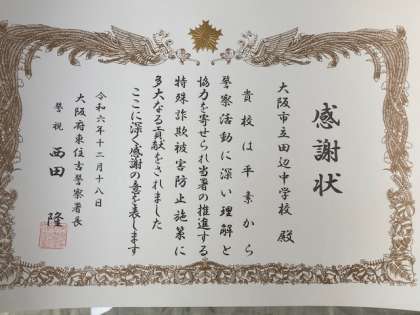 感謝状
大阪市立田辺中学校 殿
貴校は平素から
警察活動に深い理解と
協力を寄せられ当署の推進する
特殊詐欺被害防止施策に
多大なる貢献をされました
ここに深く感謝の意を表します
令和六年十二月十八日
大阪府東住吉警察署長
警視 西田 隆